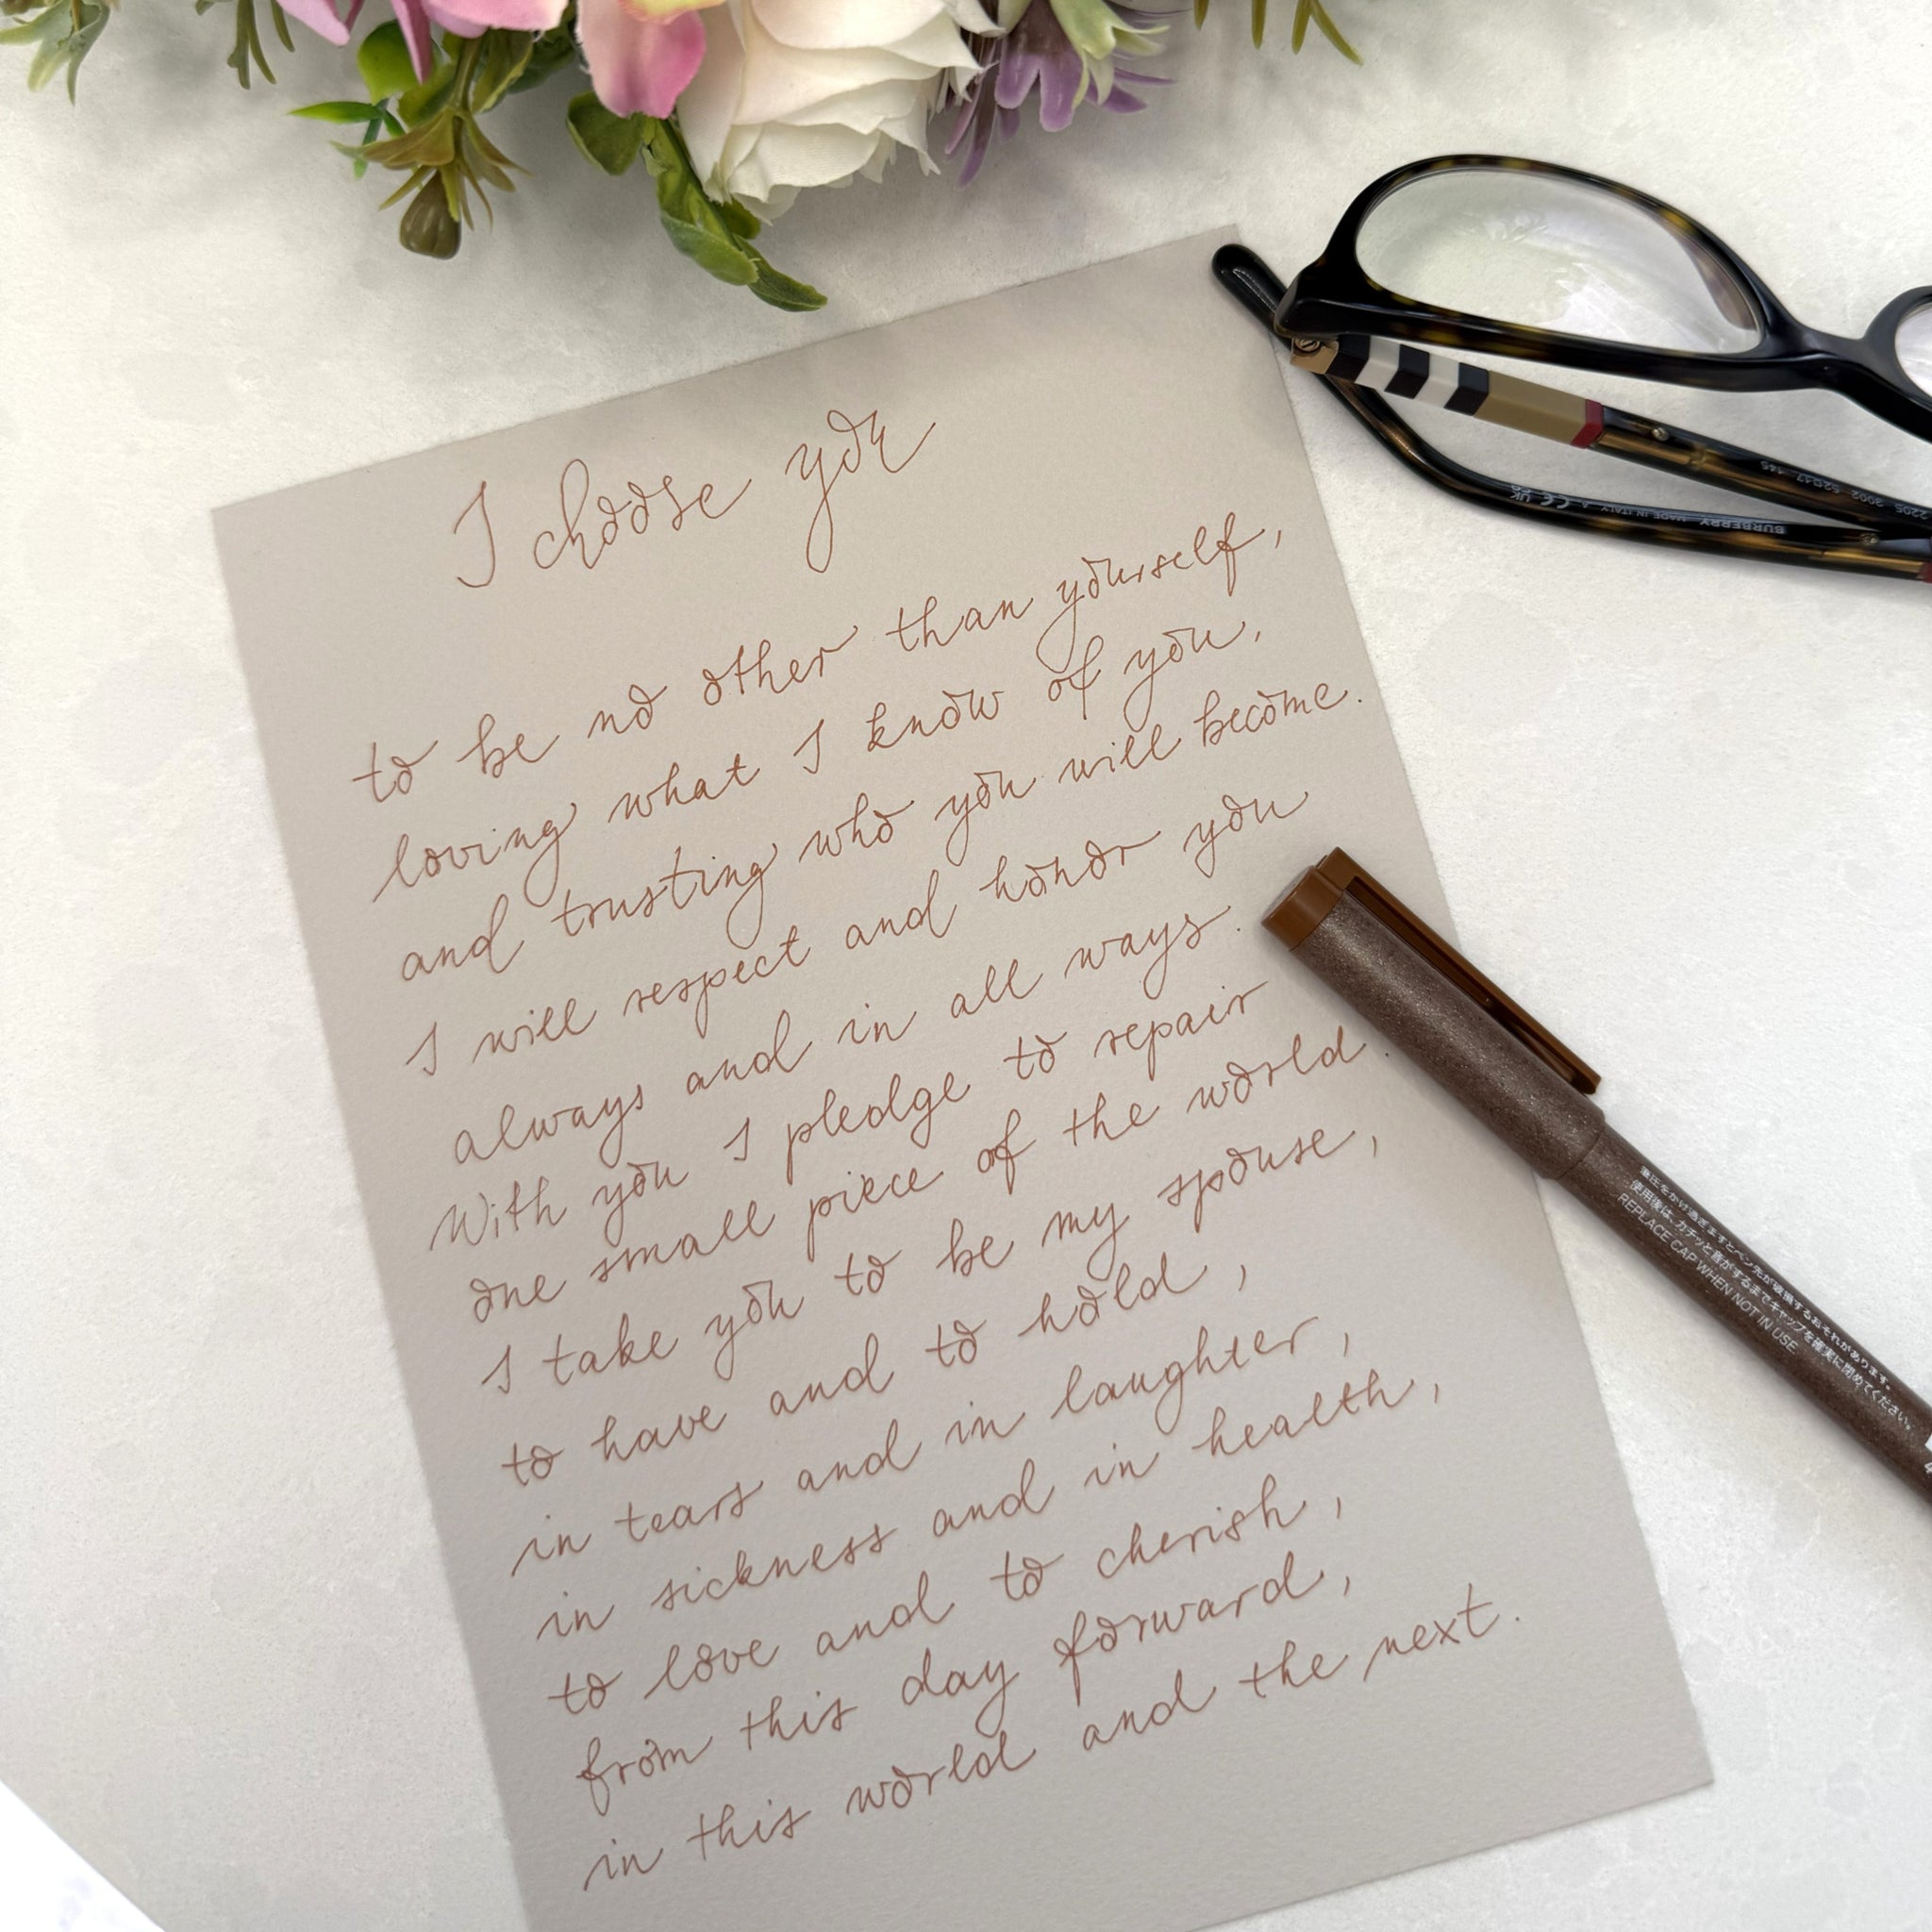 I choose you
to be no other than yourself,
loving what I know of you,
and trusting who you will become.
I will respect and honor you
always and in all ways.
With you I pledge to repair
one small piece of the world.
I take you to be my spouse,
to have and to hold,
in tears and in laughter,
in sickness and in health,
to love and to cherish,
from this day forward,
in this world and the next.
2205 3002 52□17 145
BURBERRY MADE IN ITALY CE UK
筆圧をかけ過ぎますとペン先が破損するおそれがあります。
使用後は、カチッと音がするまでキャップを確実に閉めてください。
REPLACE CAP WHEN NOT IN USE.